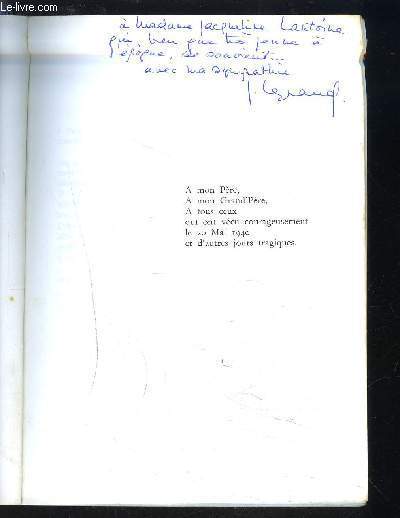 © Le-Livre.com
à Madame Jacqueline Lantoine
qui, bien que très jeune à
l'époque, se souvient...
avec ma sympathie
Legrand.
A mon Père,
A mon Grand'Père,
A tous ceux
qui ont vécu courageusement
le 20 Mai 1940
et d'autres jours tragiques.